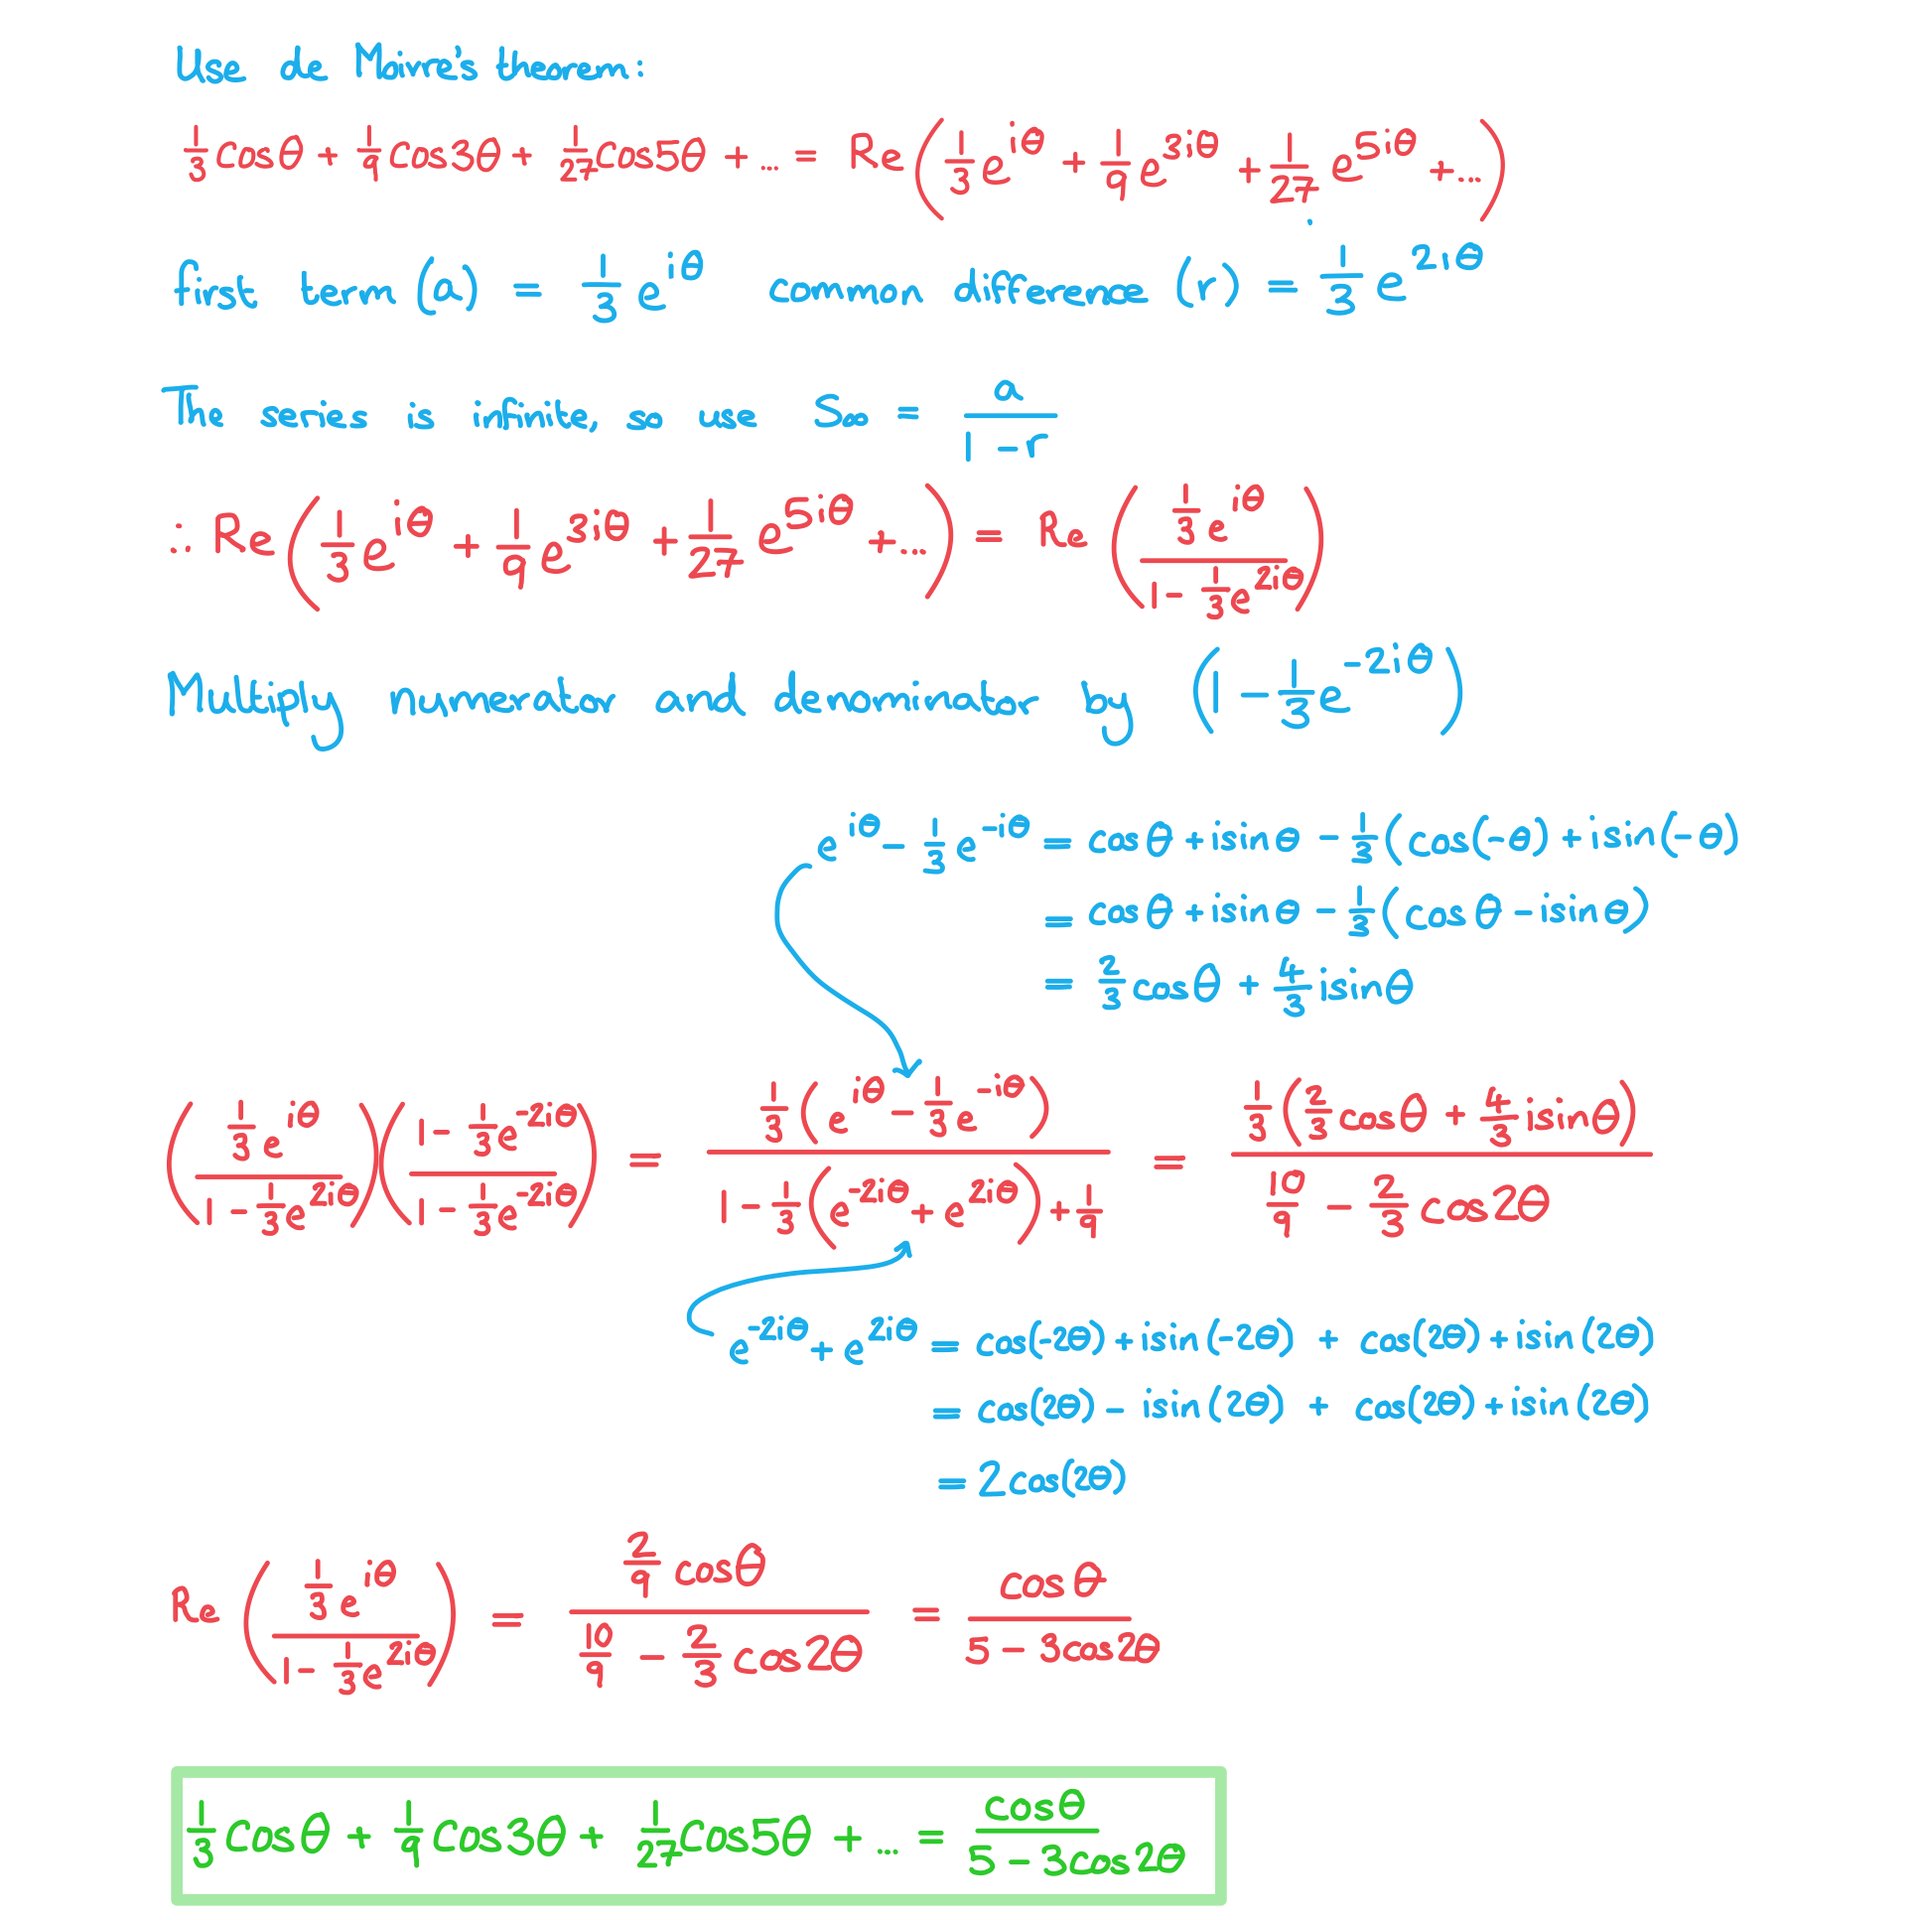 Use de Moivre's theorem:
1/3 cosθ + 1/9 cos3θ + 1/27 cos5θ + ... = Re(1/3 e^{iθ} + 1/9 e^{3iθ} + 1/27 e^{5iθ} + ...)
first term (a) = 1/3 e^{iθ} common difference (r) = 1/3 e^{2iθ}
The series is infinite, so use S∞ = a/(1 - r)
∴ Re(1/3 e^{iθ} + 1/9 e^{3iθ} + 1/27 e^{5iθ} + ...) = Re((1/3 e^{iθ})/(1 - 1/3 e^{2iθ}))
Multiply numerator and denominator by (1 - 1/3 e^{-2iθ})
e^{iθ} - 1/3 e^{-iθ} = cosθ + isinθ - 1/3(cos(-θ) + isin(-θ)
= cosθ + isinθ - 1/3(cosθ - isinθ)
= 2/3 cosθ + 4/3 isinθ
((1/3 e^{iθ})/(1 - 1/3 e^{2iθ}))((1 - 1/3 e^{-2iθ})/(1 - 1/3 e^{-2iθ})) = (1/3(e^{iθ} - 1/3 e^{-iθ}))/(1 - 1/3(e^{-2iθ} + e^{2iθ}) + 1/9) = (1/3(2/3 cosθ + 4/3 isinθ))/(10/9 - 2/3 cos2θ)
e^{-2iθ} + e^{2iθ} = cos(-2θ) + isin(-2θ) + cos(2θ) + isin(2θ)
= cos(2θ) - isin(2θ) + cos(2θ) + isin(2θ)
= 2cos(2θ)
Re((1/3 e^{iθ})/(1 - 1/3 e^{2iθ})) = (2/9 cosθ)/(10/9 - 2/3 cos2θ) = cosθ/(5 - 3cos2θ)
1/3 cosθ + 1/9 cos3θ + 1/27 cos5θ + ... = cosθ/(5 - 3cos2θ)